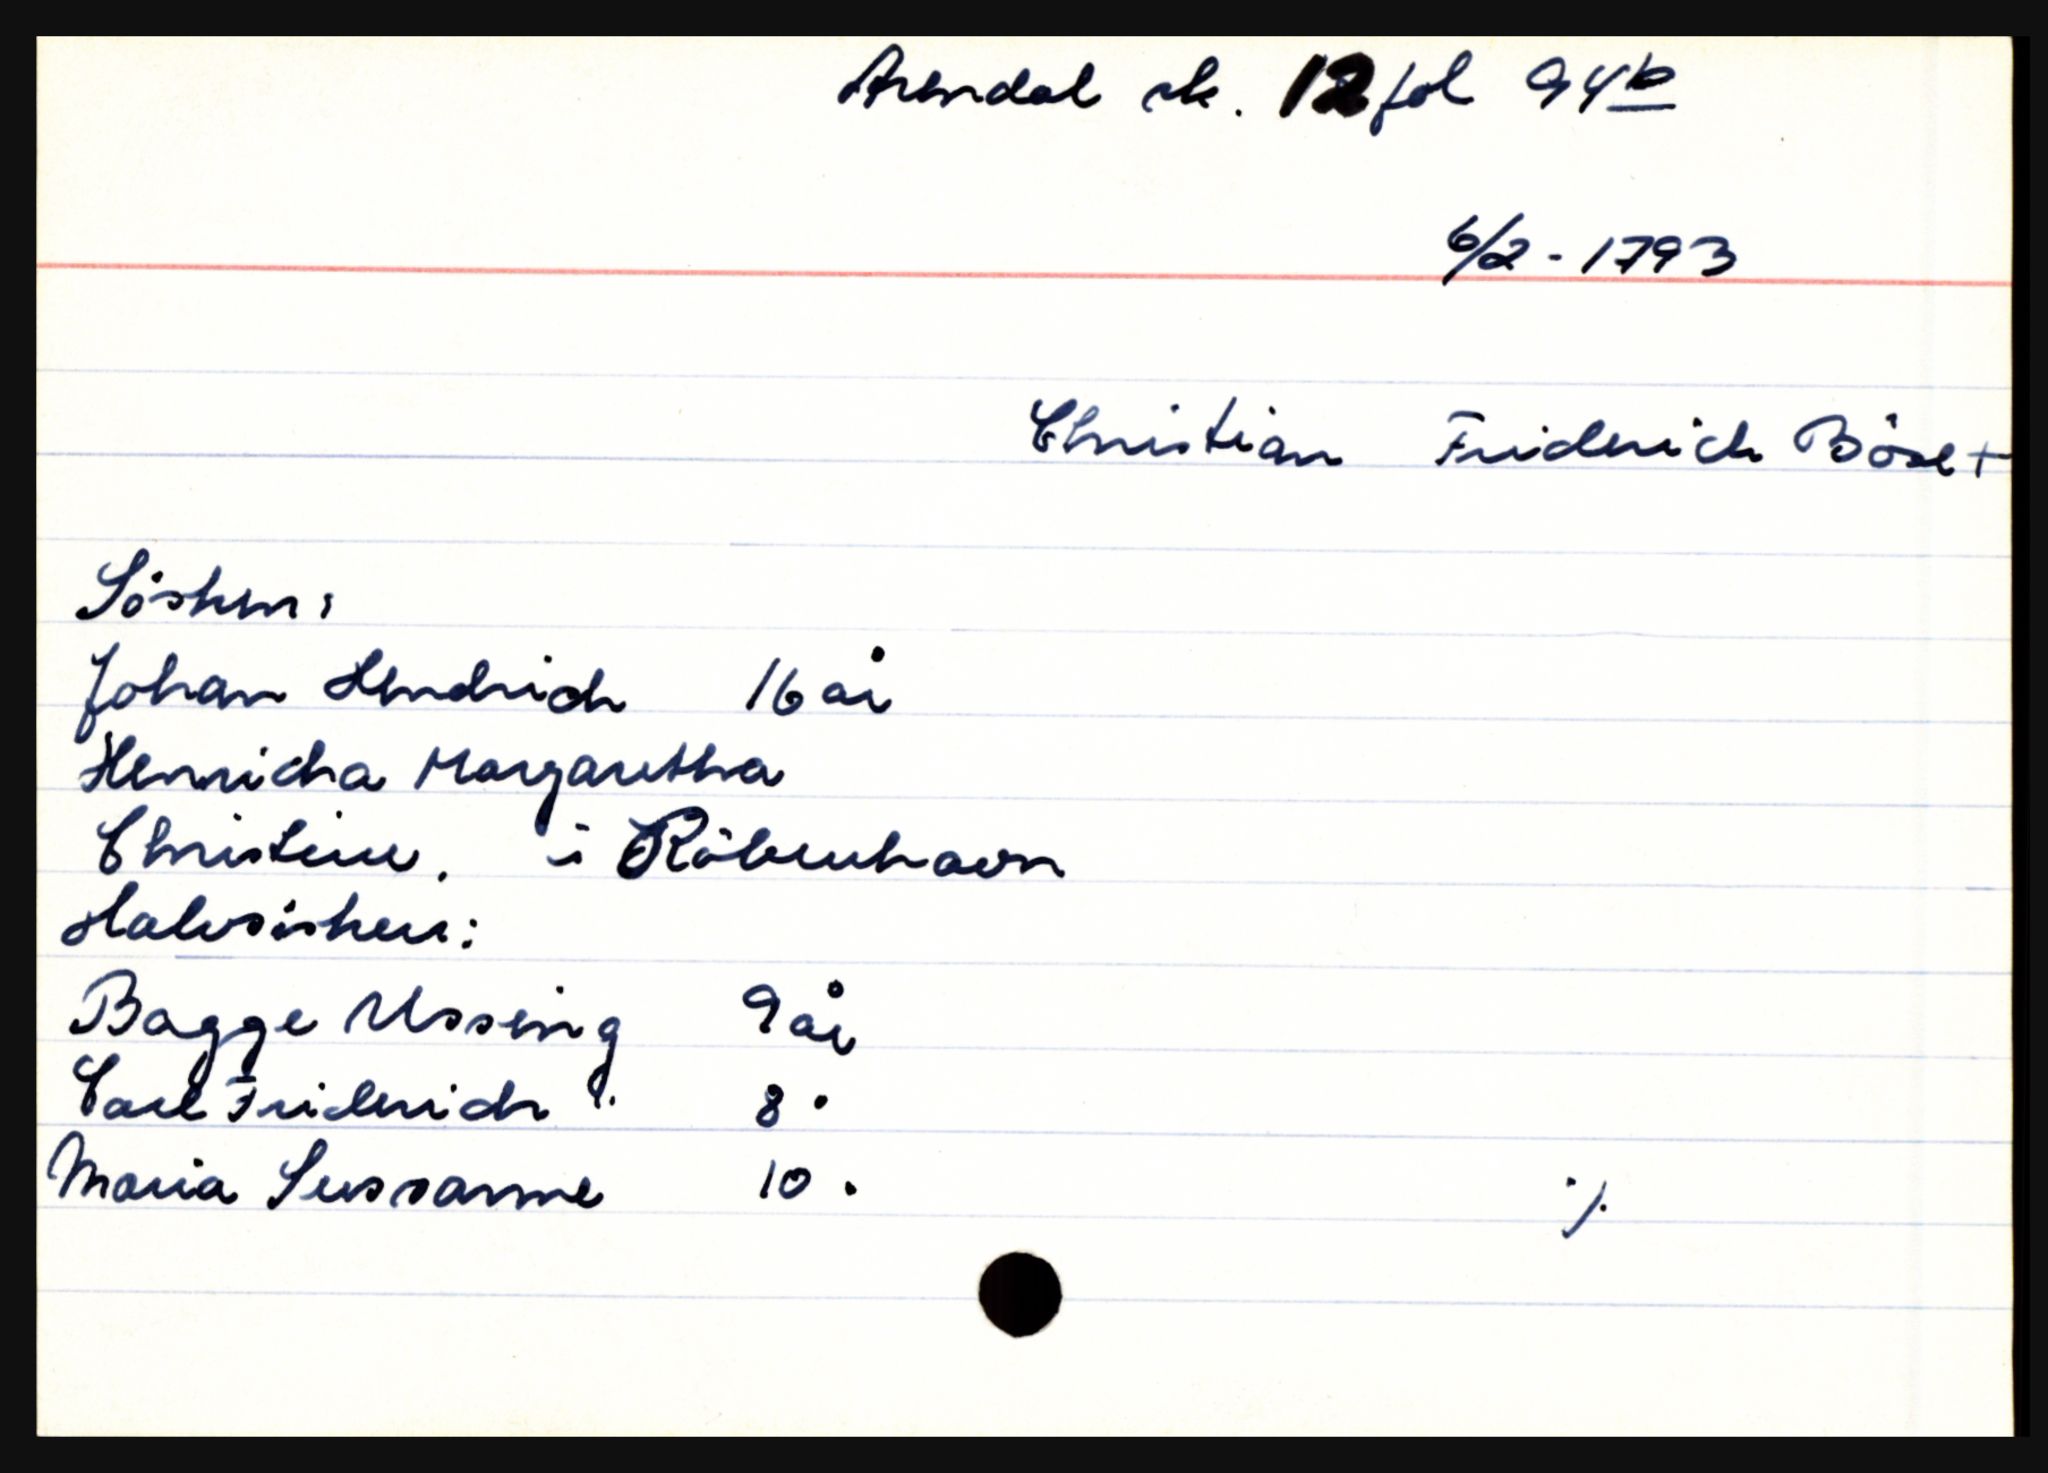 Arendal sk. 12 fol 94b
6/2 - 1793
Christian Friderich Böse +
Sösken:
Johan Hendrich 16 år
Henricha Margaretha
Christine. i Köbenhavn
Halvsösken:
Bagge Ussing 9 år
Carl Friderich 8 "
Maria Sussanne 10 "
./.